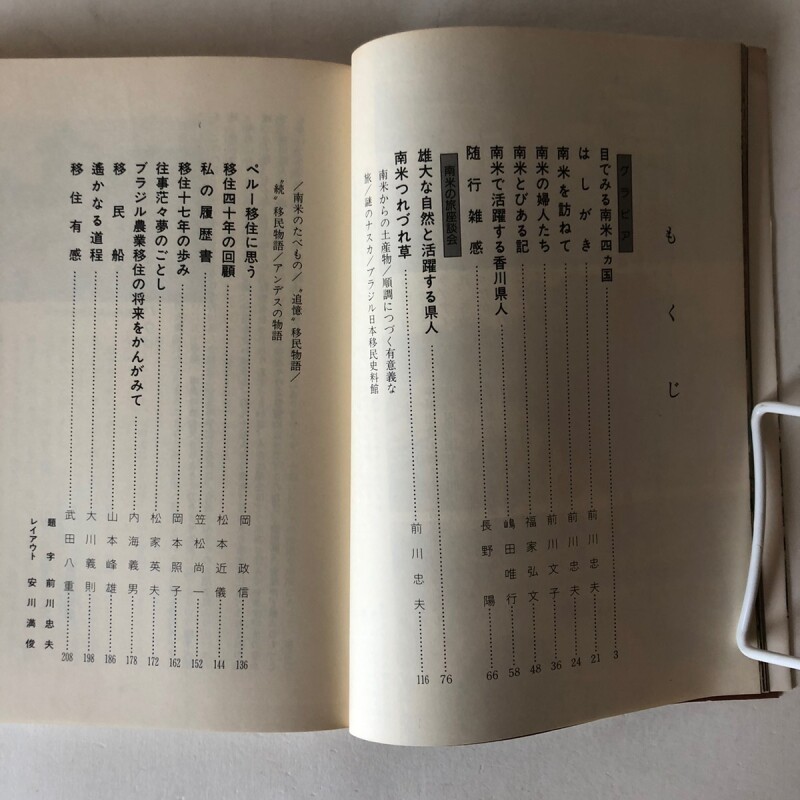 もくじ
グラビヤ
目でみる南米四ヵ国……3
はしがき……前川忠夫……21
南米を訪ねて……前川忠夫……24
南米の婦人たち……前川文子……36
南米とびある記……福家弘文……48
南米で活躍する香川県人……嶋田唯行……58
随行雑感……長野陽……66
南米の旅座談会
雄大な自然と活躍する県人……76
南米つれづれ草……前川忠夫……116
南米からの土産物／順調につづく有意義な
旅／謎のナスカ／ブラジル日本移民史料館
／南米のたべもの／〝追憶〟移民物語／
〝続〟移民物語／アンデスの物語
ペルー移住に思う……岡政信……136
移住四十年の回顧……松本近儀……144
私の履歴書……笠松尚一……152
移住十七年の歩み……岡本照子……162
往事茫々夢のごとし……松家英夫……172
ブラジル農業移住の将来をかんがみて……内海義男……178
移民船……山本峰雄……186
遙かなる道程……大川義則……198
移住有感……武田八重……208
題字 前川忠夫
レイアウト 安川満俊